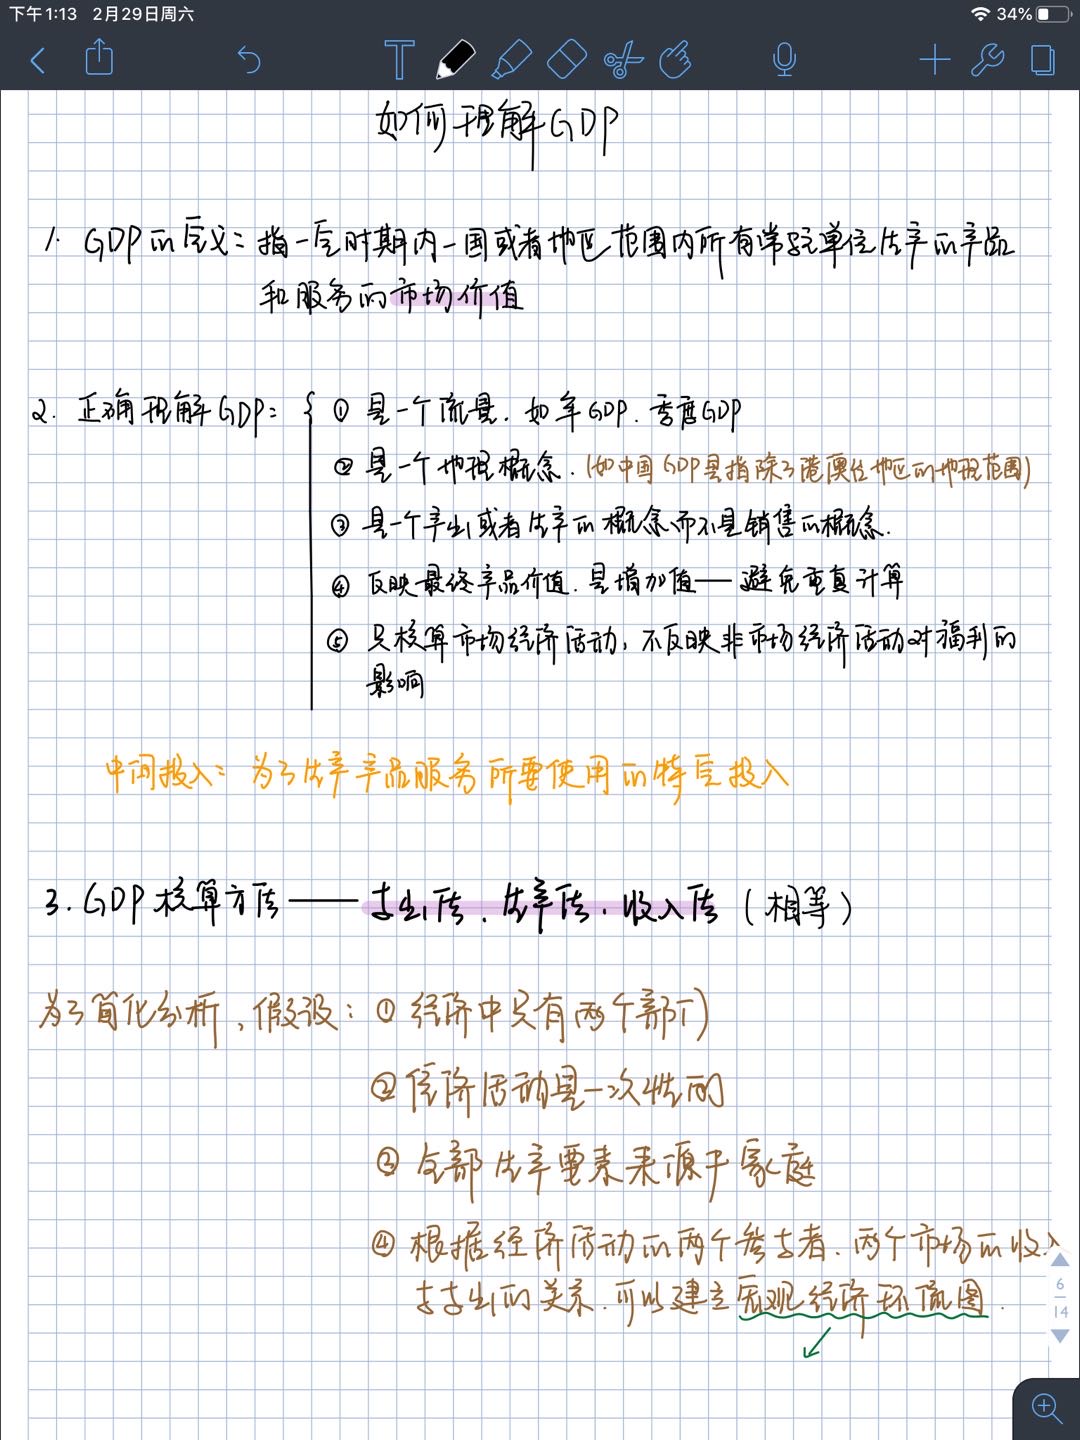 下午1:13 2月29日周六
34%
如何理解GDP
1. GDP的定义：指一定时期内一国或者地区范围内所有常驻单位生产的产品
和服务的市场价值
2. 正确理解GDP：
① 是一个流量．如年GDP．季度GDP
② 是一个地理概念．（如中国GDP是指除了港澳台地区的地理范围）
③ 是一个产出或者生产的概念而不是销售的概念．
④ 反映最终产品价值．是增加值——避免重复计算
⑤ 只核算市场经济活动，不反映非市场经济活动对福利的
影响
中间投入：为了生产产品服务所要使用的特定投入
3. GDP核算方法——支出法、生产法、收入法（相等）
为了简化分析，假设：① 经济中只有两个部门
② 经济活动是一次性的
③ 全部生产要素来源于家庭
④ 根据经济活动的两个参与者．两个市场的收入
与支出的关系．可以建立宏观经济环流图．
6
14